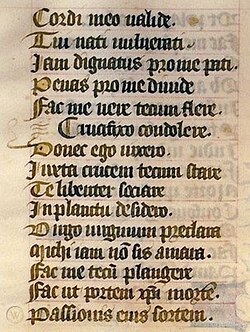 Cordi meo valide.
Tui nati vulnerati.
Iam dignatus pro me pati.
Penas pro me divide
Fac me vere tecum flere.
Crucifixo condolere.
Donec ego vixero.
Iuxta crucem tecum stare
Te libenter sociare
In planctu desidero.
Virgo virginum preclara
Michi iam non sis amara.
Fac me tecū plangere
Fac ut portem xp̄i mortē.
Passionis eius sortem.